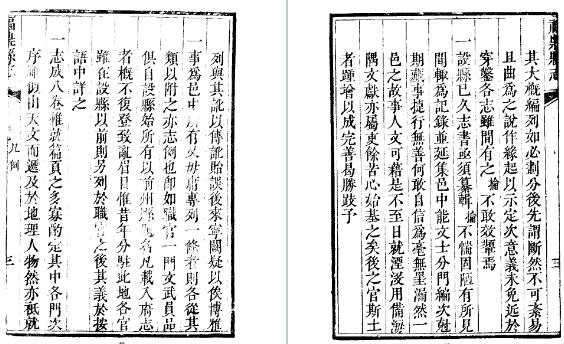 列與其訛以傳訛貽誤後來寧闕疑以俟博雅
一事為邑中所有又毋庸專列一條者則各從其
類以附之亦志例也即如職官一門文武員品
俱自設縣始所有以前州縣職名凡載入府志
者概不復登致亂眉目惟昔年分駐此地各官
雖在設縣以前則另列於職官之後其義於按
語中詳之
一志成八卷惟就篇頁之多寡酌定其中各門次
序由天文而遞及於地理人物然亦祇就
凡例
三
其大概編列如必劃分後先謂斷然不可紊易
且曲為之說作緣起以示定次意義未免近於
穿鑿各志雖間有之掄不敢效顰焉
一設縣已久志書亟須纂輯掄不惴固陋有所見
聞輒為記錄並延集邑中能文士分門編次剋
期蕆事捷行無善何敢自信為毫無罣漏然一
邑之故事人文可藉是不至日就湮沒用備海
隅文獻亦屬吏餘苦心始基之矣後之官斯土
者踵增以成完善曷勝跂予